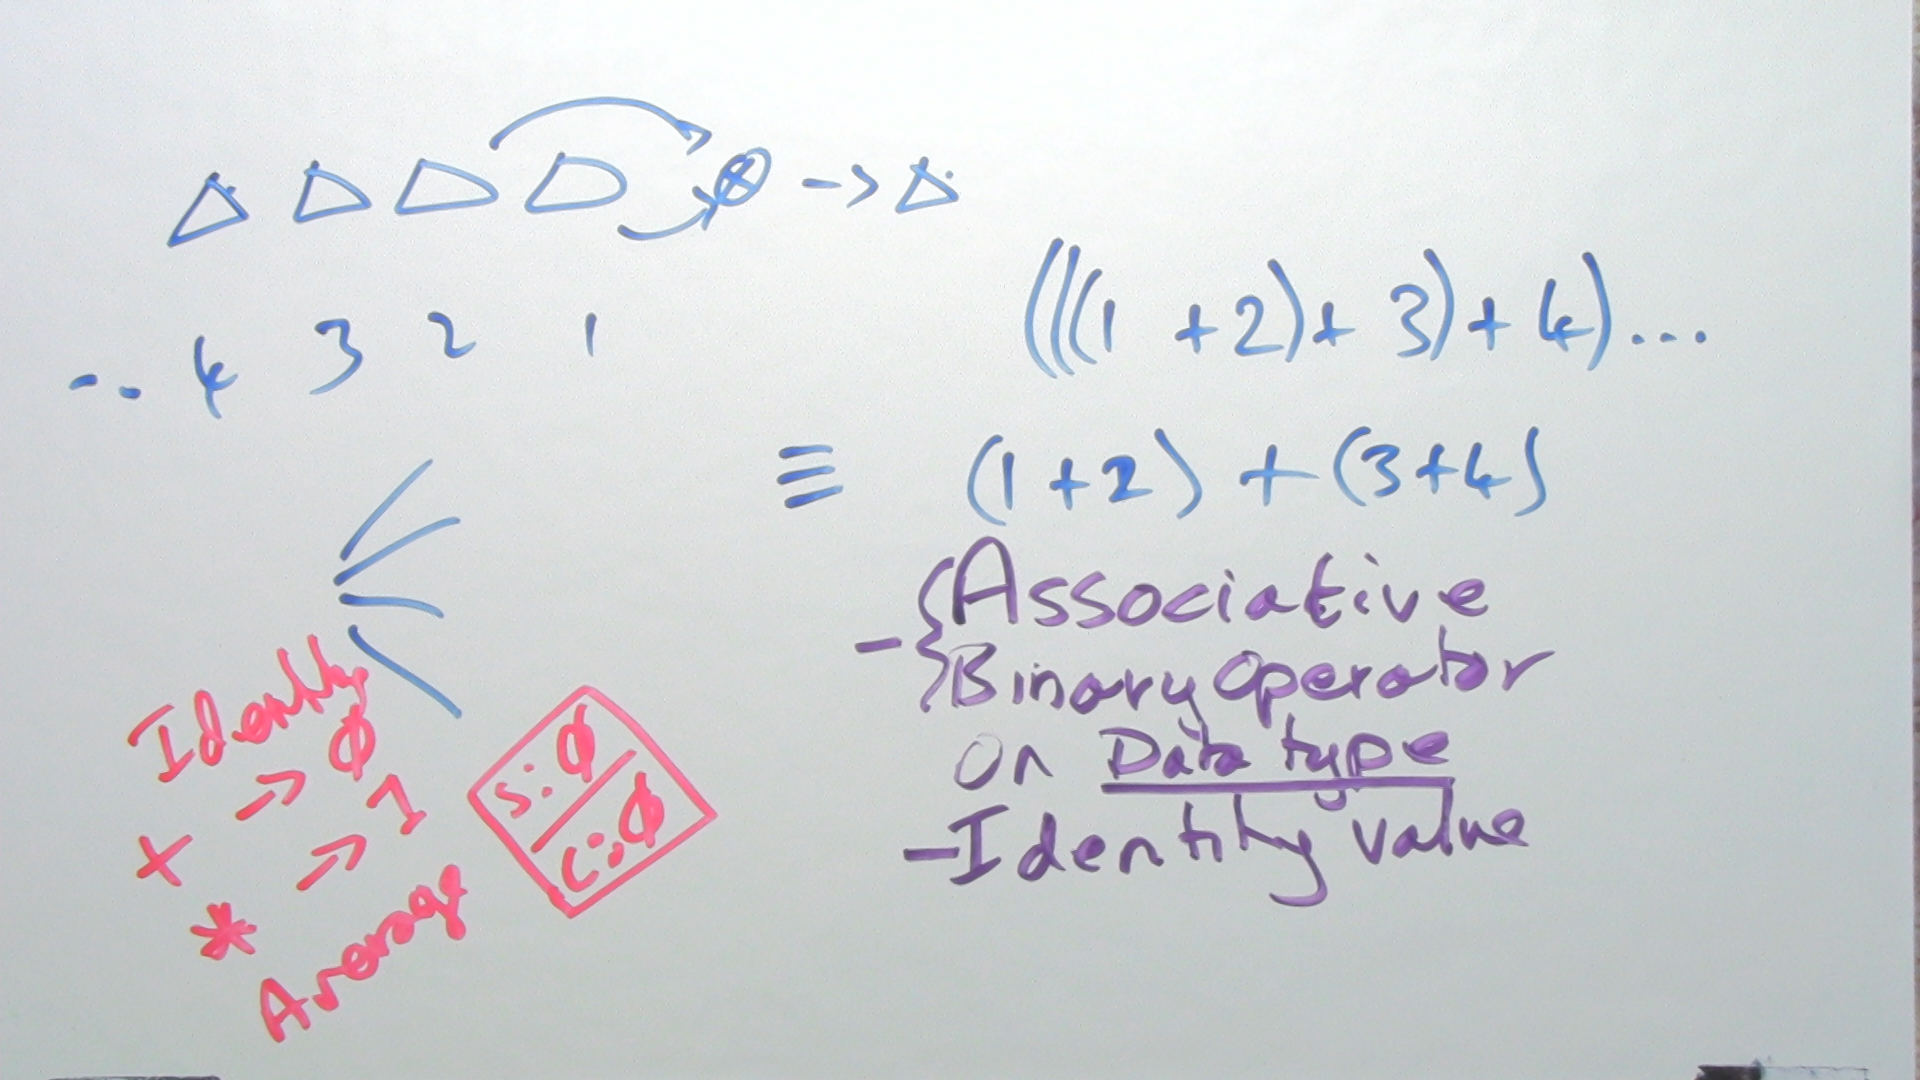 ⊗ -> Δ
.. 4 3 2 1
(((1 + 2) + 3) + 4)...
≡ (1+2) + (3+4)
- { Associative
Binary Operator
On Data type
- Identity value
Identity
+ -> Ø
* -> 1
Average
S: Ø
C: Ø